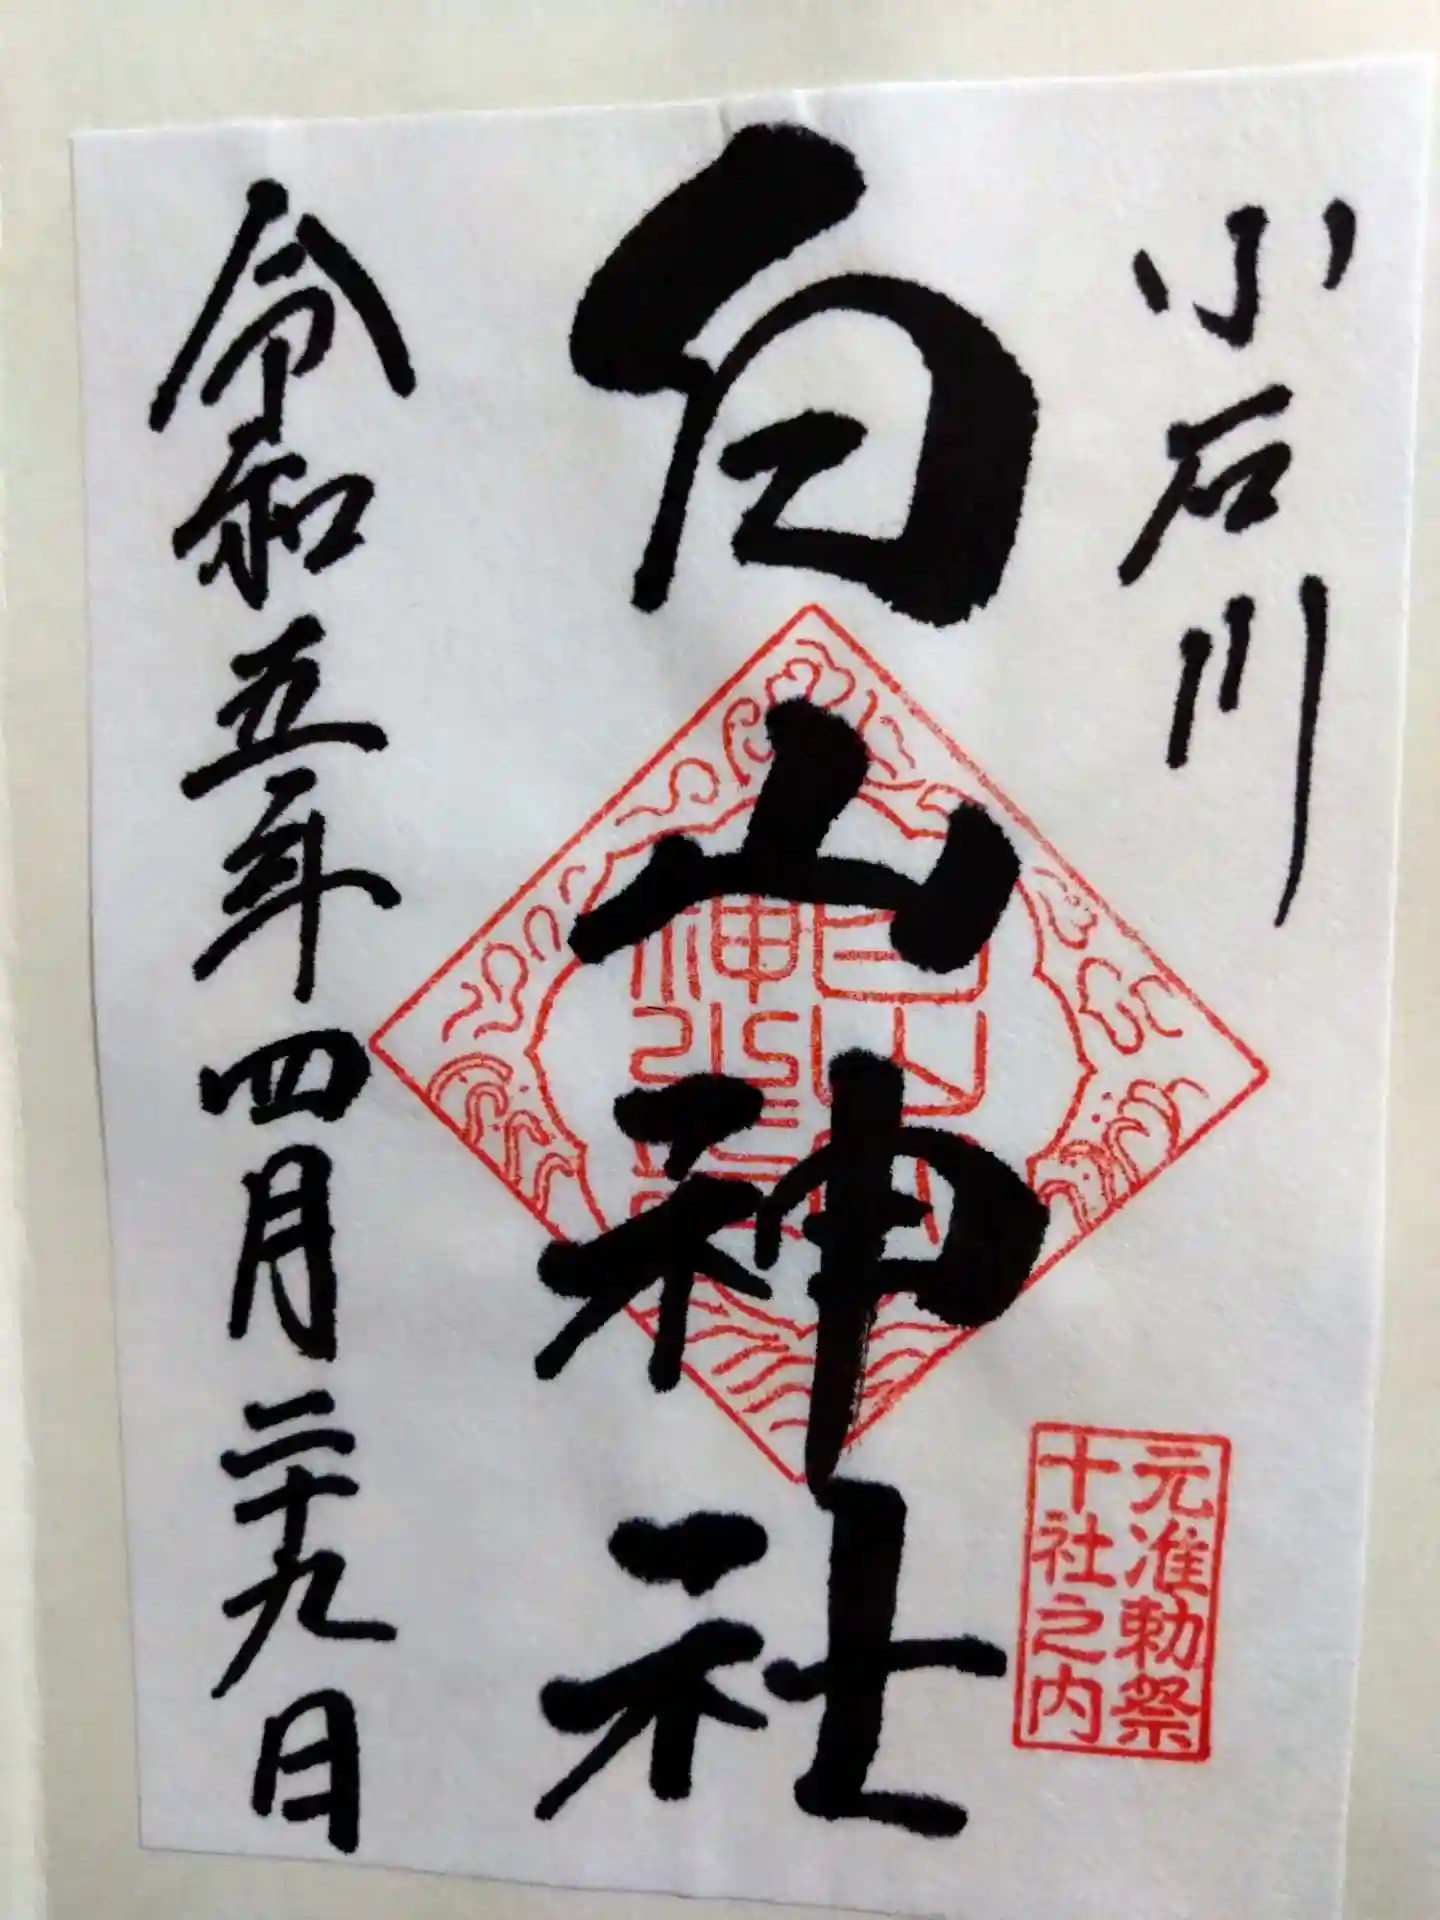 小石川
白山神社
令和五年四月二十九日
元准勅祭
十社之内